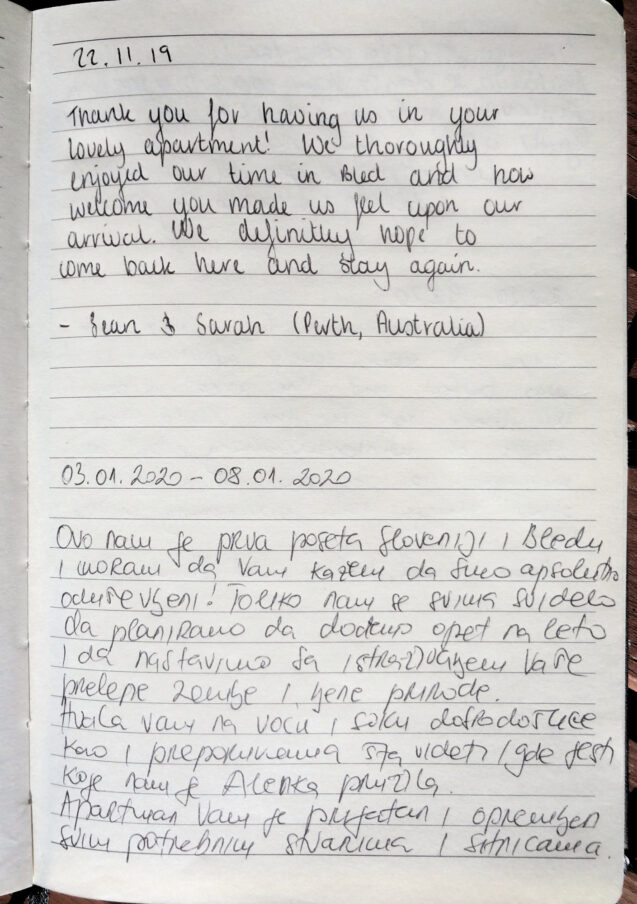 22.11.19
Thank you for having us in your
lovely apartment! We thoroughly
enjoyed our time in Bled and how
welcome you made us feel upon our
arrival. We definitley hope to
come back here and stay again.
- Sean & Sarah (Perth, Australia)
03.01.2020 - 08.01.2020
Ovo nam je prva poseta Sloveniji i Bledu
i moram da vam kažem da smo apsolutno
oduševljeni! Toliko nam se svima svidelo
da planiramo da dođemo opet na leto
i da nastavimo sa istraživanjem vaše
prelepe zemlje i njene prirode.
Hvala vam na voću i soku dobrodošlice
kao i preporukama šta videti i gde jesti
koje nam je Alenka pružila.
Apartman vam je prijatan i opremljen
svim potrebnim stvarima i sitnicama.